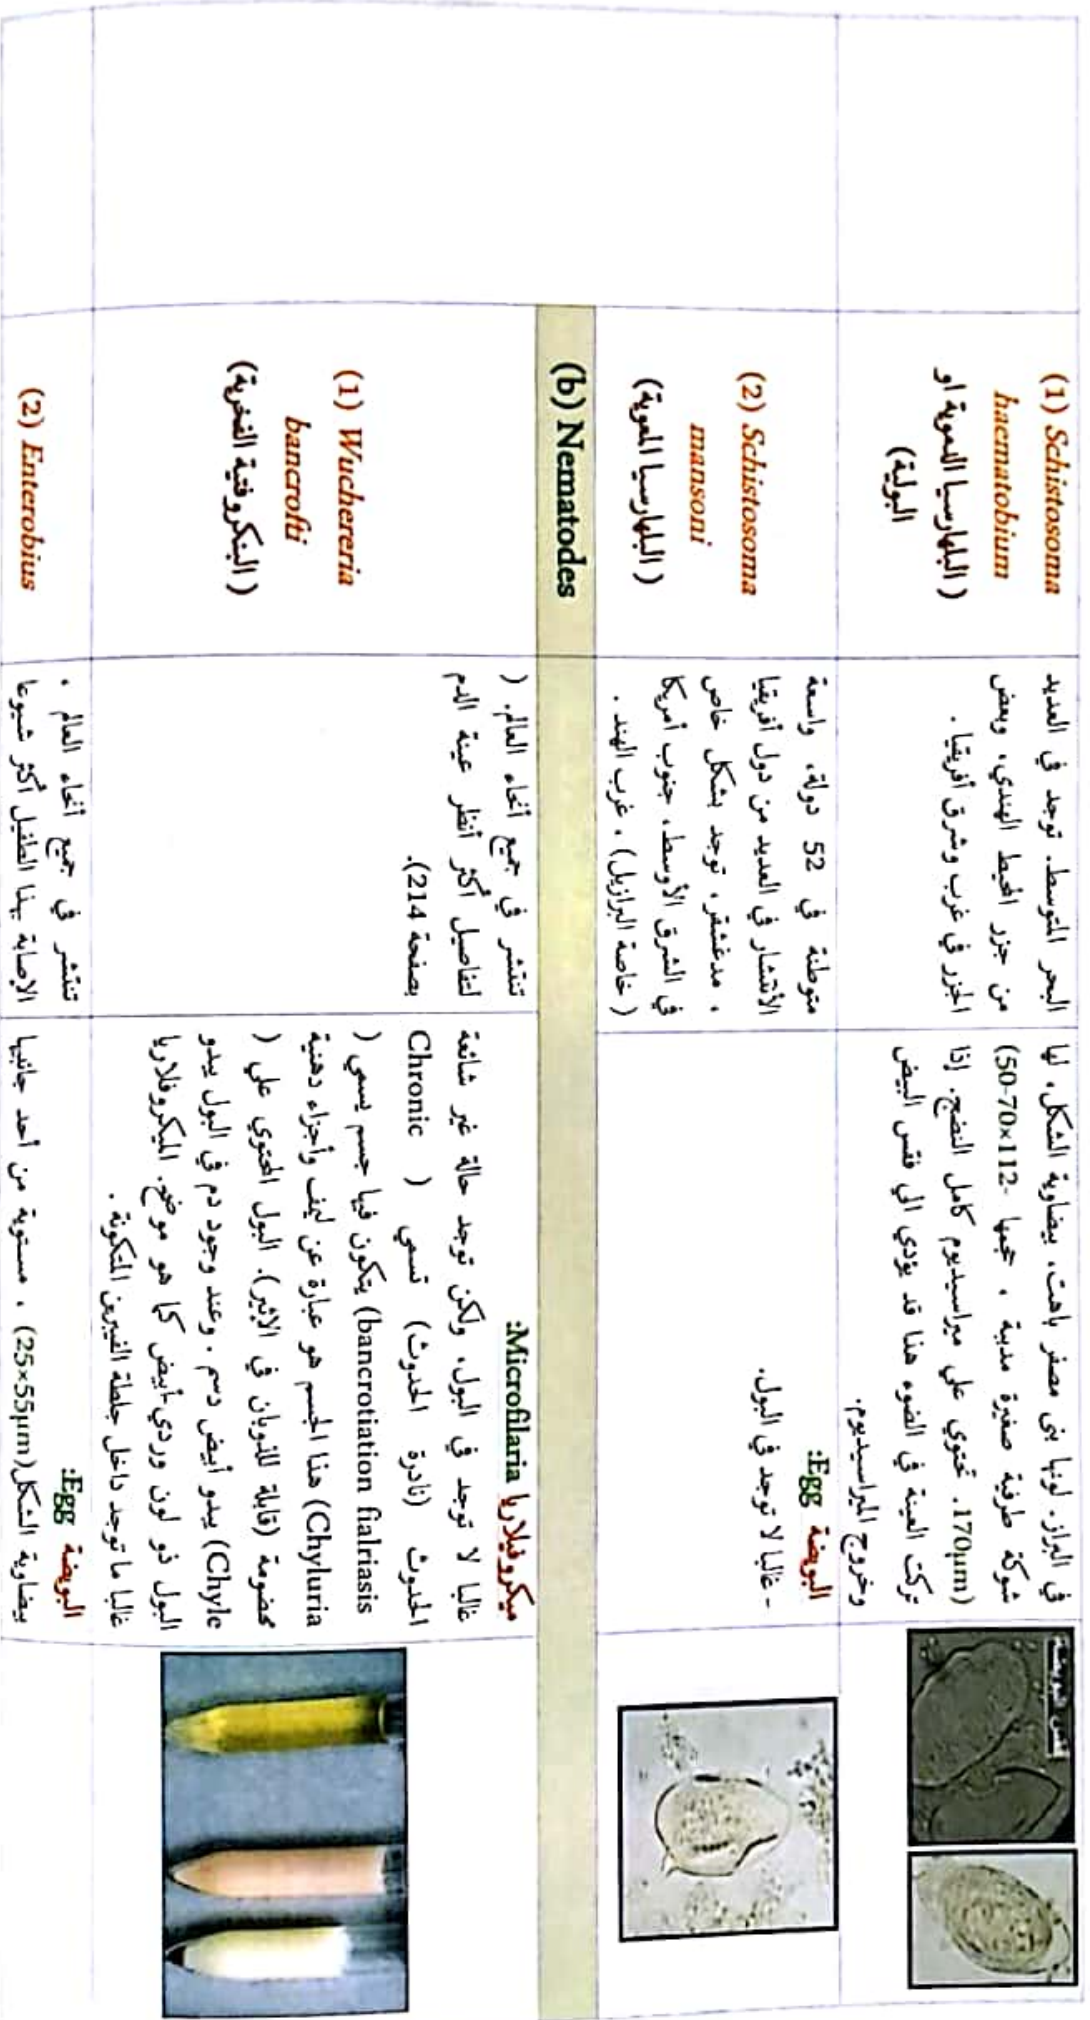 (1) Schistosoma
haematobium
( البلهارسيا الدموية او
البولية)
البحر المتوسط. توجد في العديد
من جزر المحيط الهندي، وبعض
الجزر في غرب وشرق أفريقيا .
في البراز. لونها بنى مصفر باهت، بيضاوية الشكل، لها
شوكة طرفية صغيرة مدببة ، حجمها (50-70×112-
170µm) . تحتوي علي ميراسيديوم كامل النضج. إذا
تركت العينة في الضوء هذا قد يؤدي الي فقس البيض
وخروج الميراسيديوم.
(2) Schistosoma
mansoni
( البلهارسيا المعوية)
متوطنة في 52 دولة، واسعة
الأنتشار في العديد من دول أفريقيا
، مدغشقر، توجد بشكل خاص
في الشرق الأوسط، جنوب أمريكا
( خاصة البرازيل) ، غرب الهند .
البويضة Egg:
- غالبا لا توجد في البول.
(b) Nematodes
(1) Wuchereria
bancrofti
( البنكروفتية الفخرية)
تنتشر في جميع أنحاء العالم. (
لتفاصيل أكثر أنظر عينة الدم
بصفحة 214).
ميكروفيلاريا Microfilaria:
غالبا لا توجد في البول، ولكن توجد حالة غير شائعة
الحدوث (نادرة الحدوث) تسمي ( Chronic
bancrotiation fialriasis) يتكون فيا جسم يسمي (
Chyluria) هذا الجسم هو عبارة عن ليف وأجزاء دهنية
مخضومة (قابلة للذوبان في الإثير). البول المحتوي علي (
Chyle) يبدو أبيض دسم . وعند وجود دم في البول يبدو
البول ذو لون وردي-أبيض كما هو موضح. الميكروفلاريا
غالبا ما توجد داخل جلطة الفيبرين المتكونة .
(2) Enterobius
تنتشر في جميع أنحاء العالم .
الإصابة بهذا الطفيل أكثر شيوعا
البويضة Egg:
بيضاوية الشكل(25×55µm) ، مستوية من أحد جانبيها